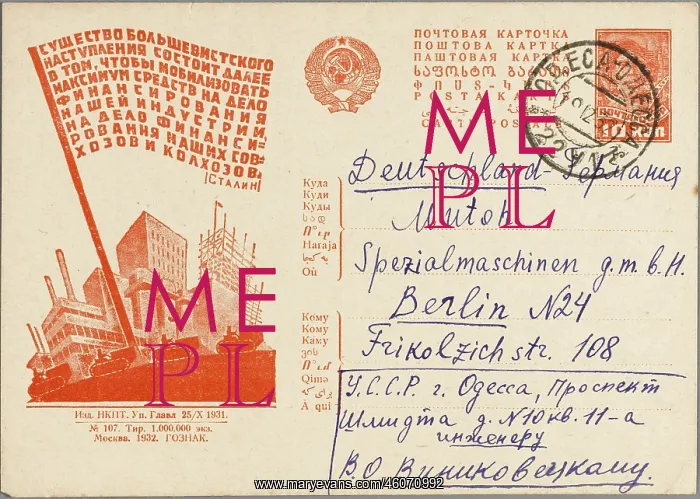 СУЩЕСТВО БОЛЬШЕВИСТСКОГО
НАСТУПЛЕНИЯ СОСТОИТ ДАЛЕЕ
В ТОМ, ЧТОБЫ МОБИЛИЗОВАТЬ
МАКСИМУМ СРЕДСТВ НА ДЕЛО
ФИНАНСИРОВАНИЯ
НАШЕЙ ИНДУСТРИИ,
НА ДЕЛО ФИНАНСИ=
РОВАНИЯ НАШИХ СОВ=
ХОЗОВ И КОЛХОЗОВ.
(СТАЛИН)
Изд. НКПТ. Уп. Главл 25/X 1931.
№ 107. Тир. 1.000,000 экз.
Москва. 1932. ГОЗНАК.
ПОЧТОВАЯ КАРТОЧКА
ПОШТОВА КАРТКА
ПАШТОВАЯ КАРТКА
ՓՈՍՏ-
POSTA
CARTE POSTALE
ОДЕССА ODESSA
Куда
Куди
Куды
Haraja
Où
Кому
Кому
Каму
ვის
Qimə
À qui
Deutschland-Германия
Mutoh
Spezialmaschinen g.m.b.H.
Berlin N24
str. 108
У.С.С.Р. г. Одесса, Проспект
Шмидта д. N10 кв. 11-а
инженеру
В.О Виниковецкому.
ME
PL
ME
PL
www.maryevans.com/46070992